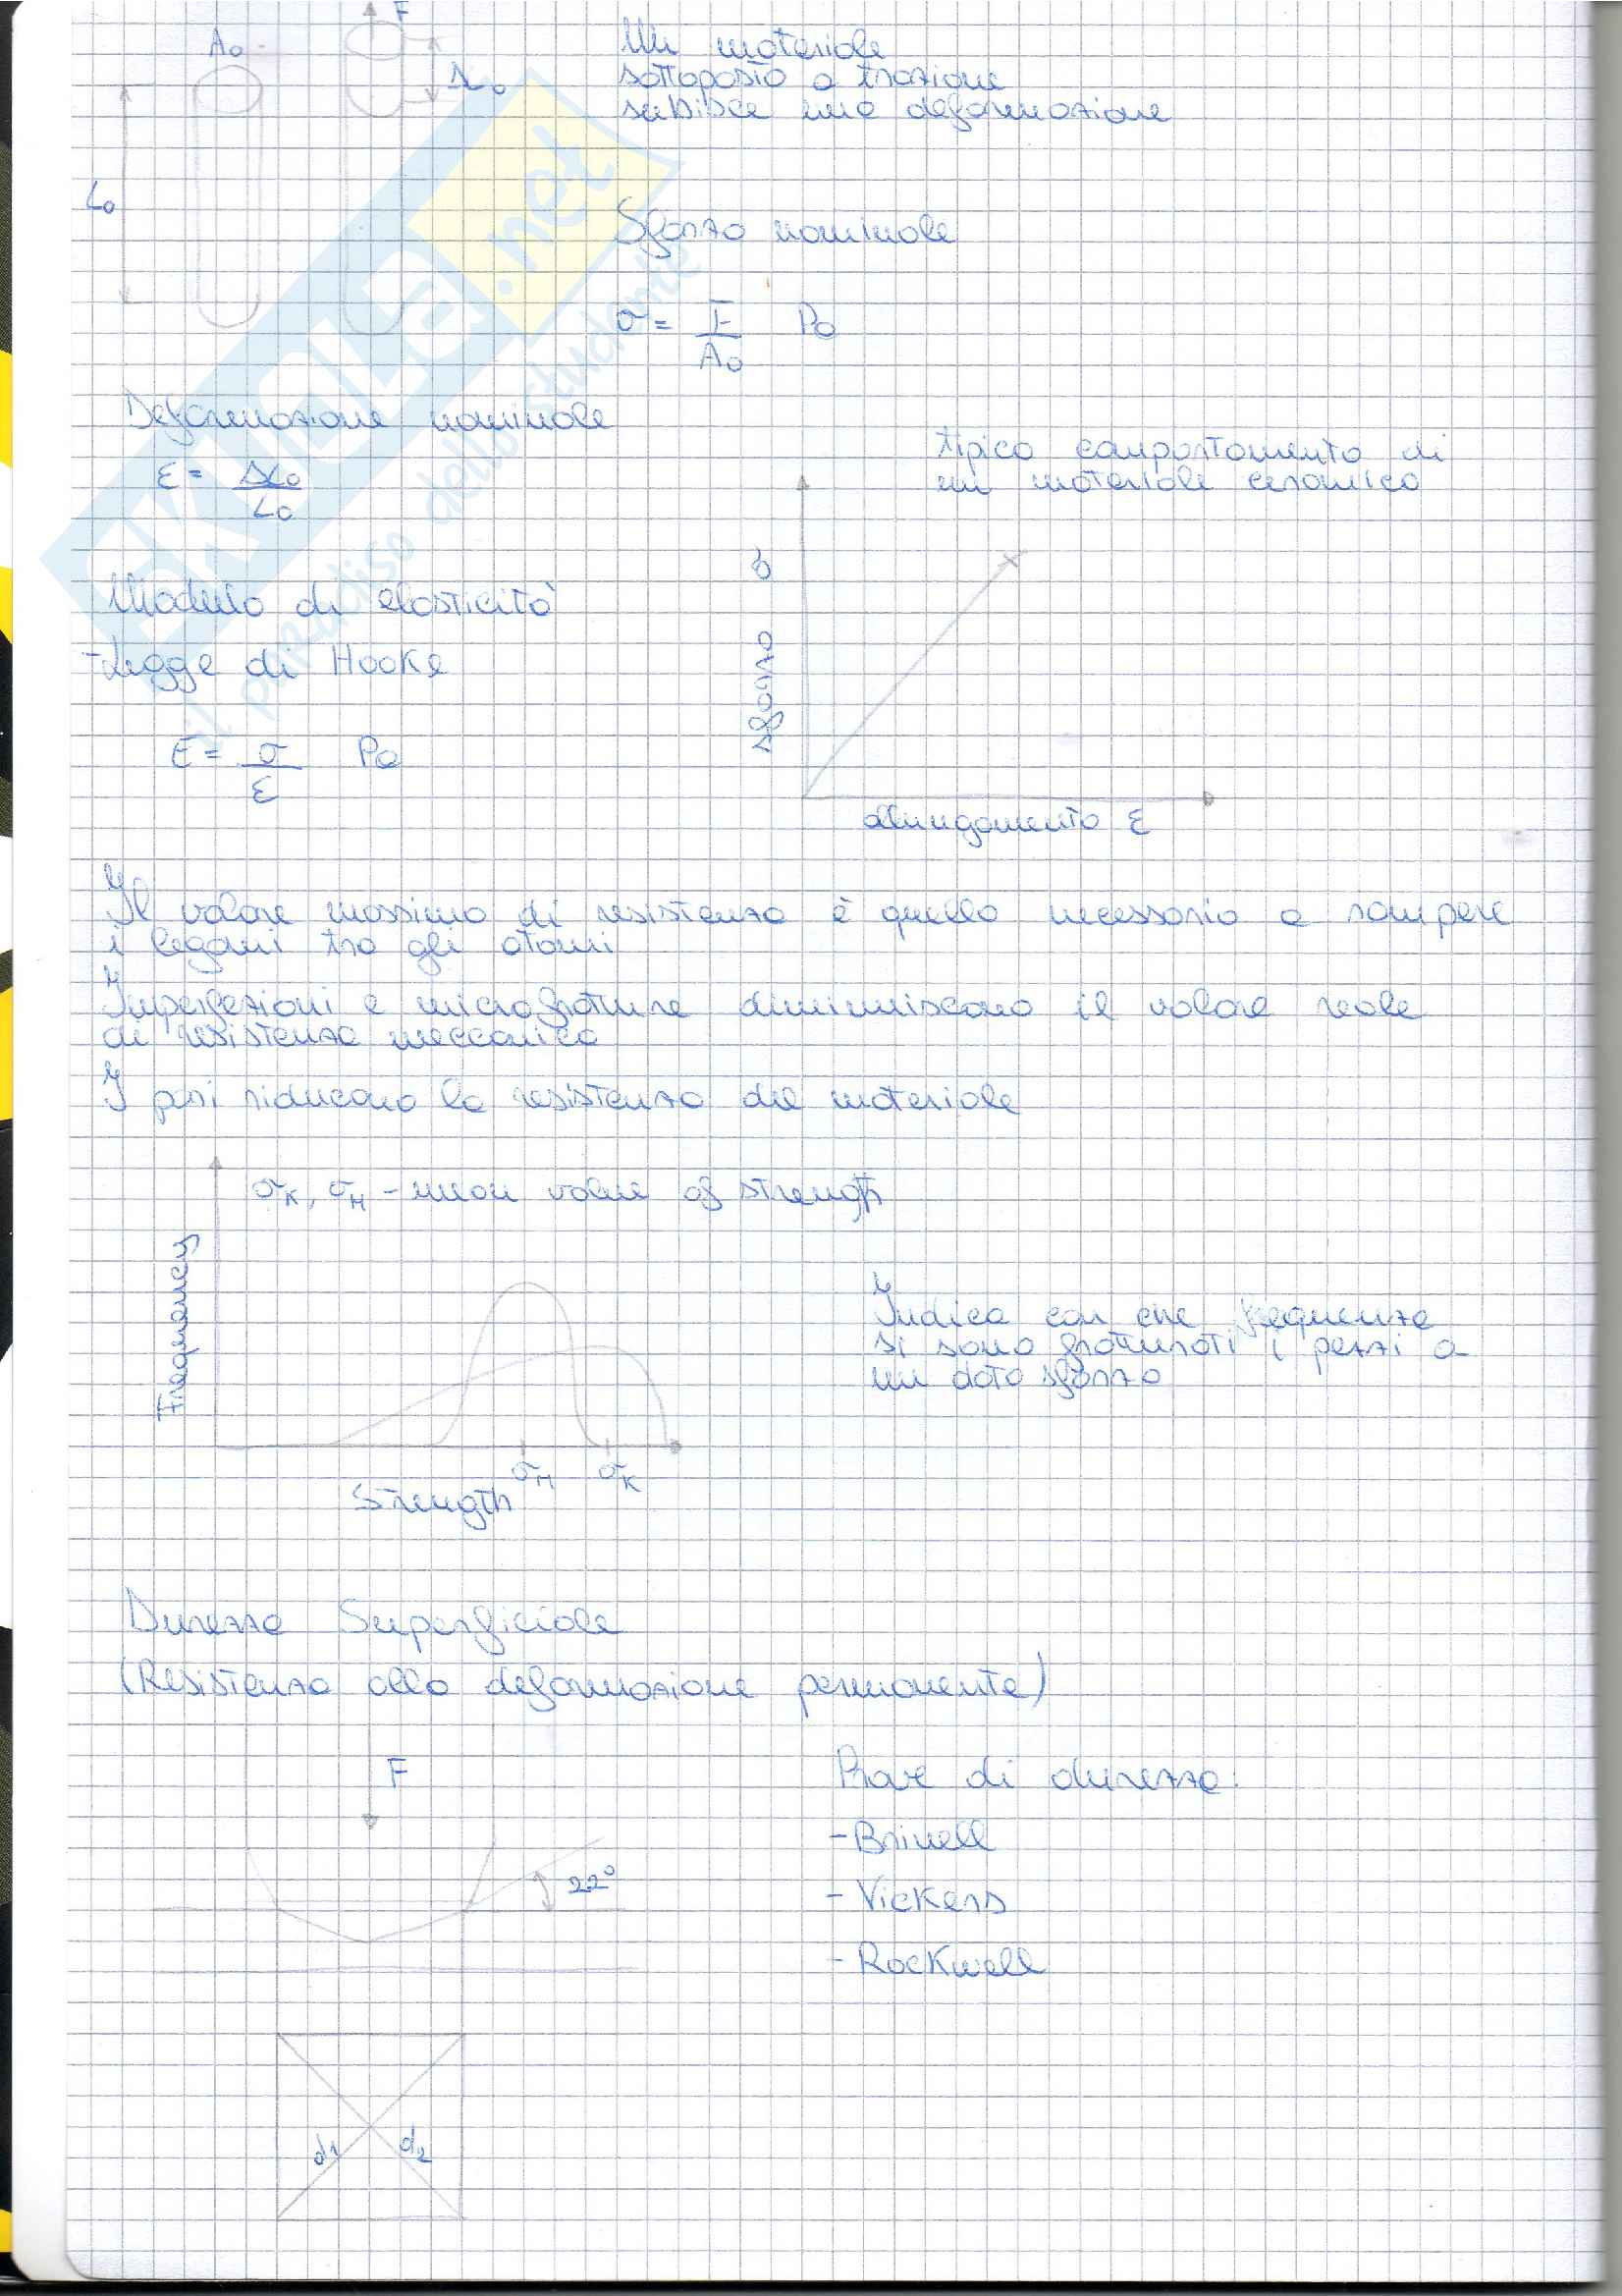 F
A₀
Δl₀
L₀
Un materiale
sottoposto a trazione
subisce una deformazione
Sforzo nominale
σ = F/A₀ Pa
Deformazione nominale
ε = Δl₀/L₀
tipico comportamento di
un materiale ceramico
sforzo σ
allungamento ε
Modulo di elasticità
-Legge di Hooke
E = σ/ε Pa
Il valore massimo di resistenza è quello necessario a rompere
i legami tra gli atomi
Imperfezioni e microfratture diminuiscono il valore reale
di resistenza meccanica
I pori riducono la resistenza del materiale
σK, σM - mean value of strength
Frequency
σM σK
Strength
Indica con che frequenza
si sono fratturati i pezzi a
un dato sforzo
Durezza Superficiale
(Resistenza alla deformazione permanente)
F
22°
Prove di durezza:
-Brinell
-Vickers
-Rockwell
d1 d2
SKUOLA.net
il paradiso dello studente